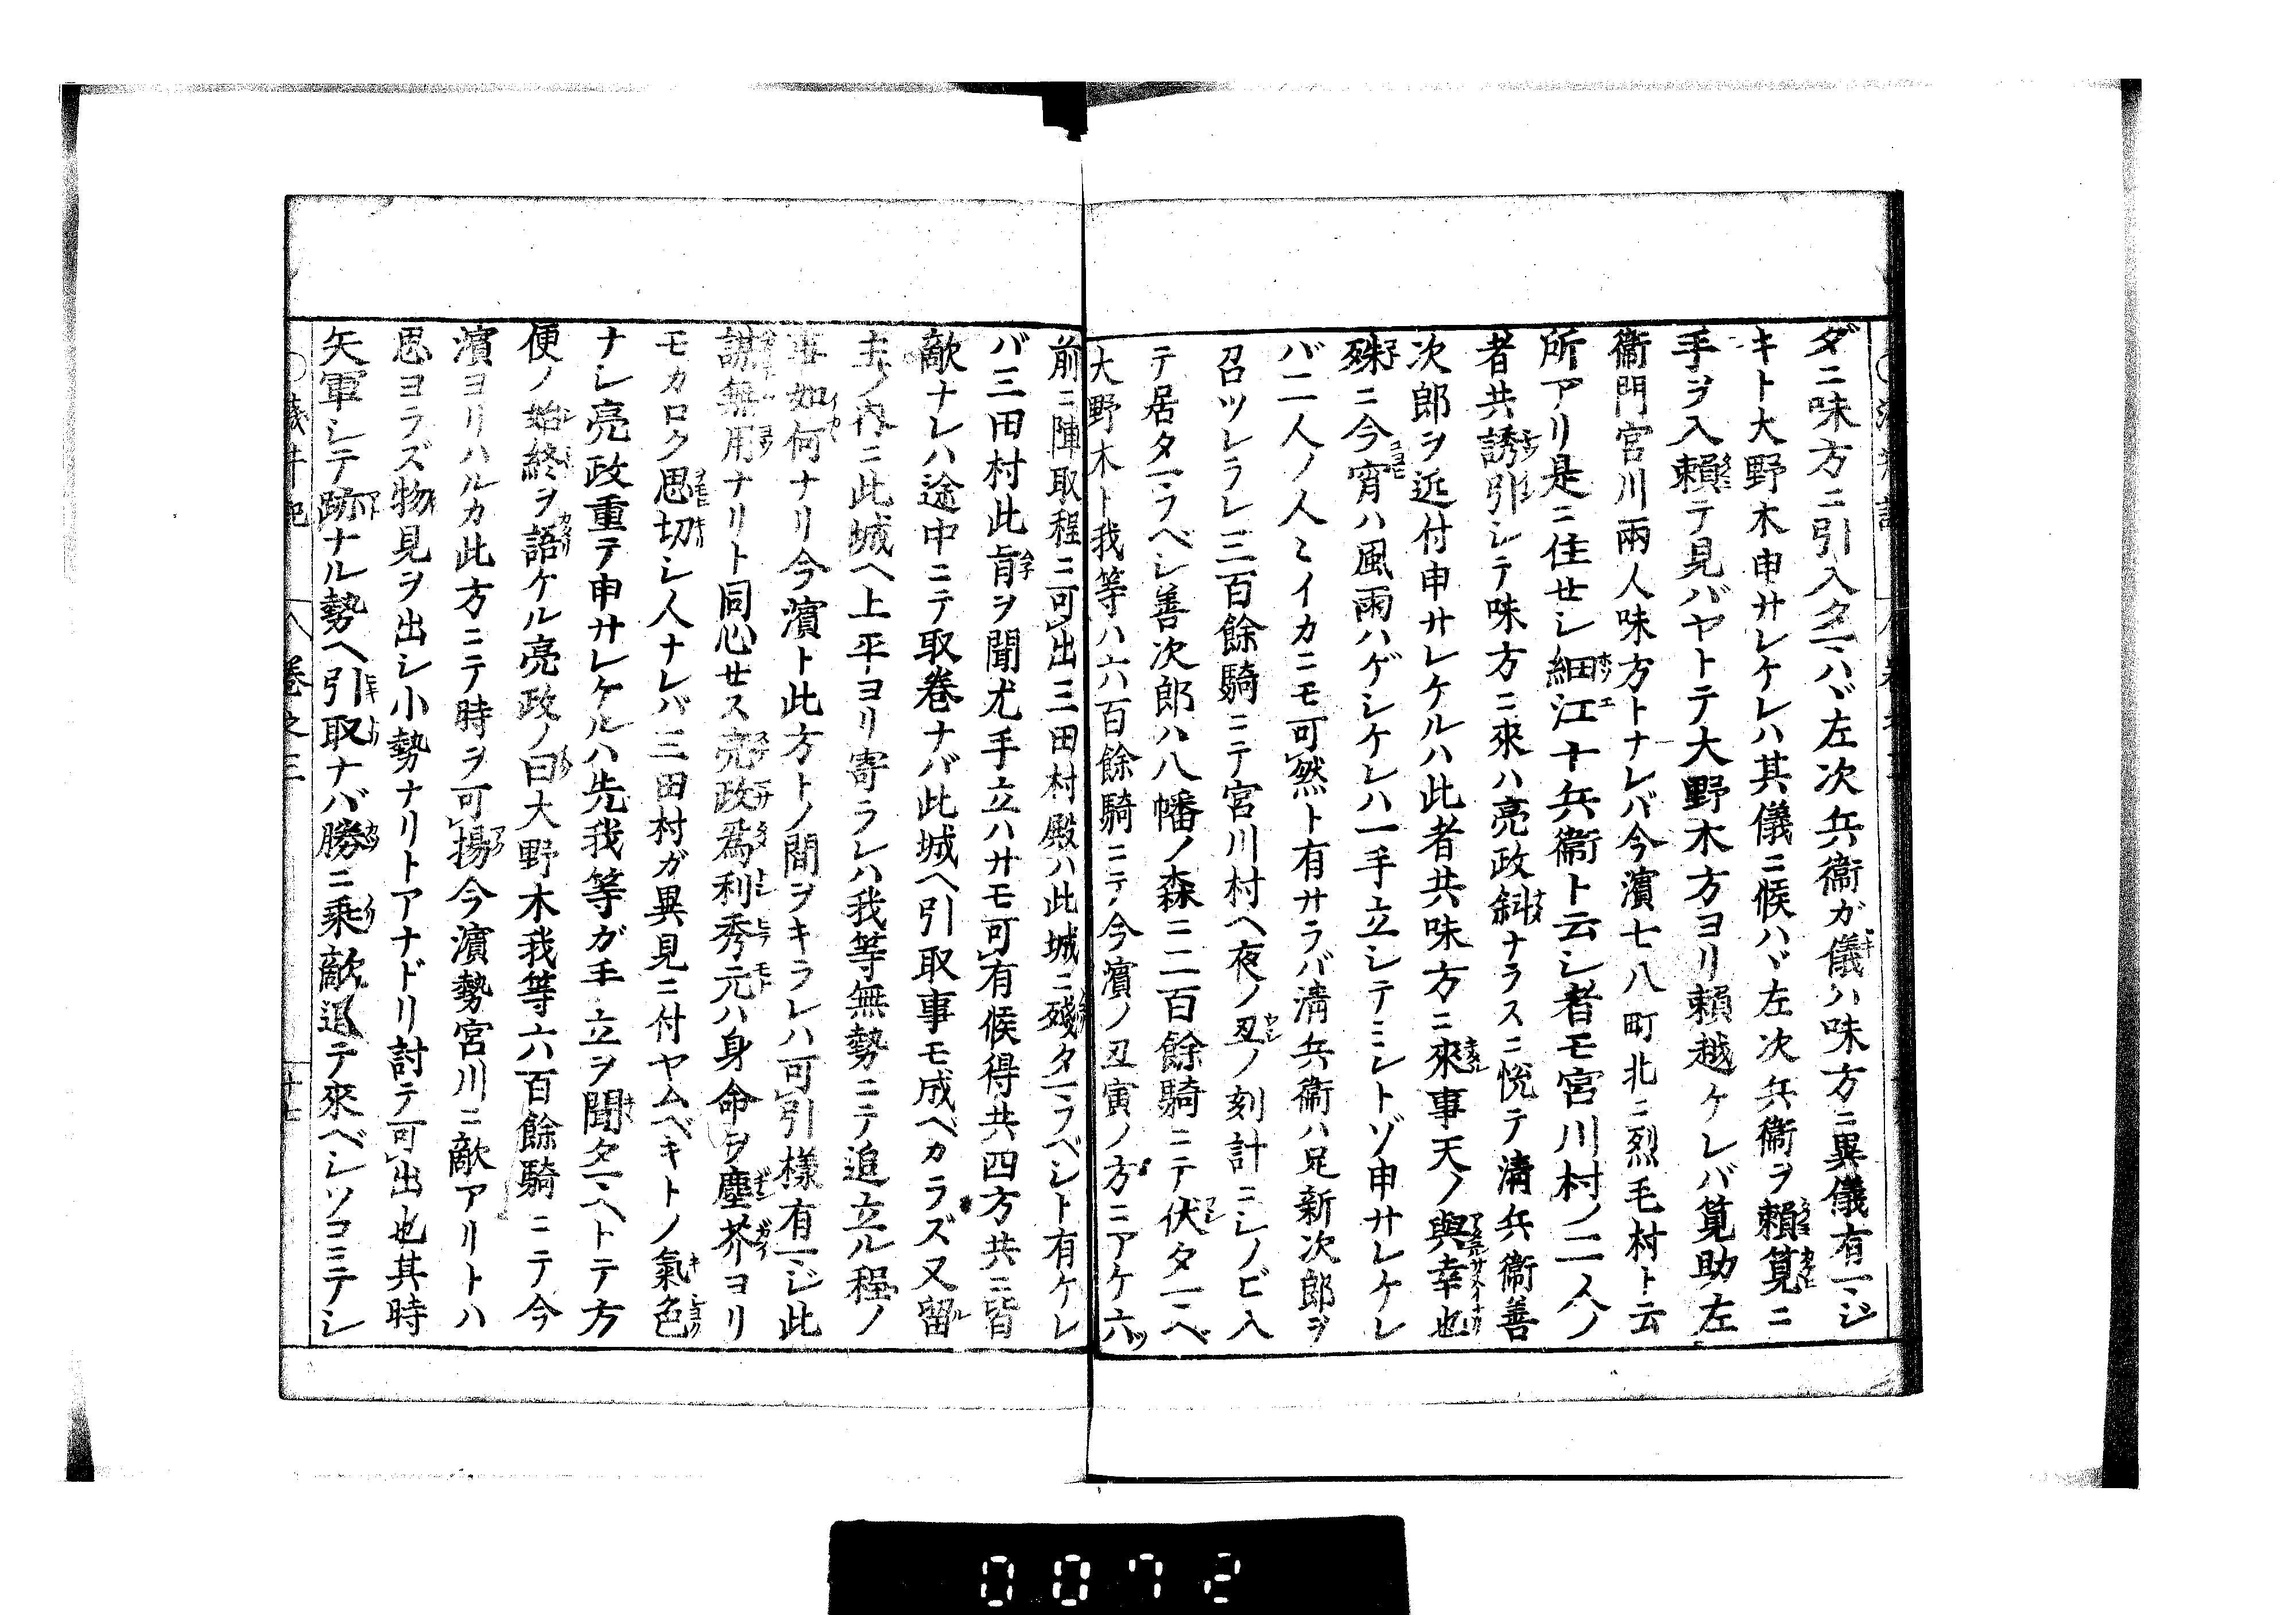 ダニ味方ニ引入タマハヾ左次兵衞ガ儀ハ味方ニ異儀有マジ
キト大野木申サレケレハ其儀ニ候ハヾ左次兵衞ヲ賴覓ニ
手ヲ入賴テ見バヤトテ大野木方ヨリ賴越ケレバ覓助左
衞門宮川兩人味方トナレバ今濱七八町北ニ烈毛村ト云
所アリ是ニ住せシ細江十兵衞ト云シ者モ宮川村ノ二人ノ
者共誘引シテ味方ニ來ハ亮政斜ナラスニ悅テ淸兵衞善
次郎ヲ近付申サレケルハ此者共味方ニ來事天ノ與幸也
殊ニ今宵ハ風雨ハゲシケレハ一手立シテミントゾ申サレケレ
バ二人ノ人ミイカニモ可然ト有サラバ淸兵衞ハ足新次郎ヲ
召ツレラレ三百餘騎ニテ宮川村ヘ夜ノ丑ノ刻計ニシノビ入
テ居タマフベシ善次郎ハ八幡ノ森ニ二百餘騎ニテ伏タマヘ
大野木ト我等ハ六百餘騎ニテ今濱ノ丑寅ノ方ニアケ六ツ
前ニ陣取程ニ可出三田村殿ハ此城ニ殘タマフベシト有ケレ
バ三田村此旨ヲ聞尤手立ハサモ可有候得共四方共ニ皆
敵ナレハ途中ニテ取卷ナバ此城ヘ引取事モ成ベカラズ又留
主ノ內ニ此城ヘ上平ヨリ寄ラレハ我等無勢ニテ追立ル程ノ
事如何ナリ今濱ト此方トノ間ヲキラレハ可引樣有マジ此
謀無用ナリト同心せス亮政爲利秀元ハ身命ヲ塵芥ヨリ
モカロク思切シ人ナレバ三田村ガ異見ニ付ヤムベキトノ氣色
ナシ亮政重テ申サレケルハ先我等ガ手立ヲ聞タマヘトテ方
便ノ始終ヲ語ケル亮政ノ曰大野木我等六百餘騎ニテ今
濱ヨリハルカ此方ニテ時ヲ可揚今濱勢宮川ニ敵アリトハ
思ヨラズ物見ヲ出シ小勢ナリトアナドリ討テ可出也其時
矢軍シテ跡ナル勢ヘ引取ナバ勝ニ乘敵追テ來ベシソコミテシ
卷之三
十七
0072